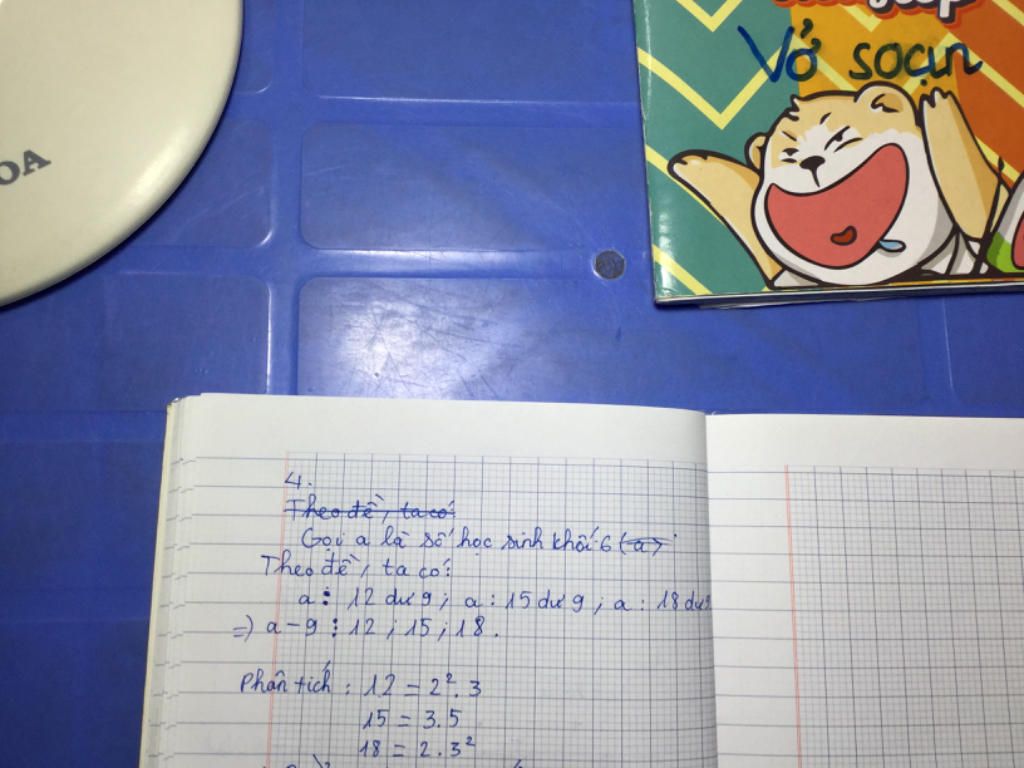 OA
Vở soạn
4.
Theo đề, ta có:
Gọi a là số học sinh khối 6 (a)
Theo đề, ta có:
a : 12 dư 9 ; a : 15 dư 9 ; a : 18 dư 9
=) a - 9 ⋮ 12 ; 15 ; 18.
Phân tích : 12 = 2². 3
15 = 3.5
18 = 2.3²